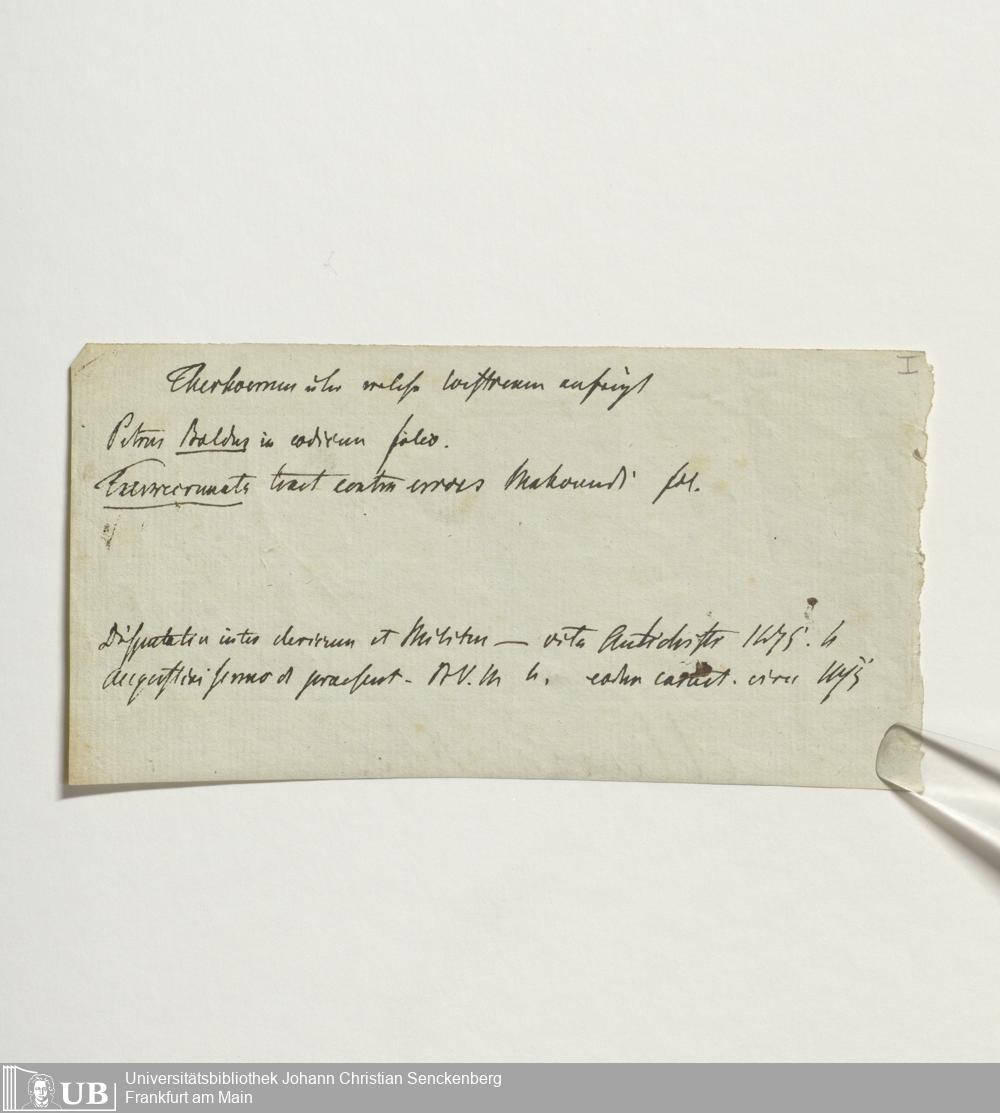 I
Therhoernen welche anfängt
Petrus Baldus in codicem folio.
Turrecremata tract contra errores Mahoundi fol.
Disputatio inter clericum et Militem — vita Antichristi 1475. 4
Augustini sermo d praesent. B.V.M 4. eodem caract. circa 1475
UB
Universitätsbibliothek Johann Christian Senckenberg
Frankfurt am Main